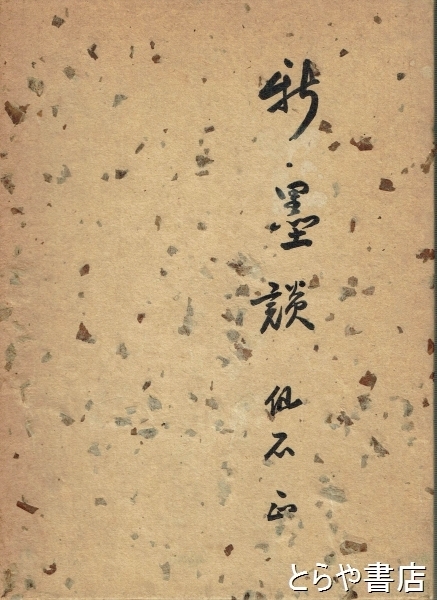 新墨談
仙石正
とらや書店